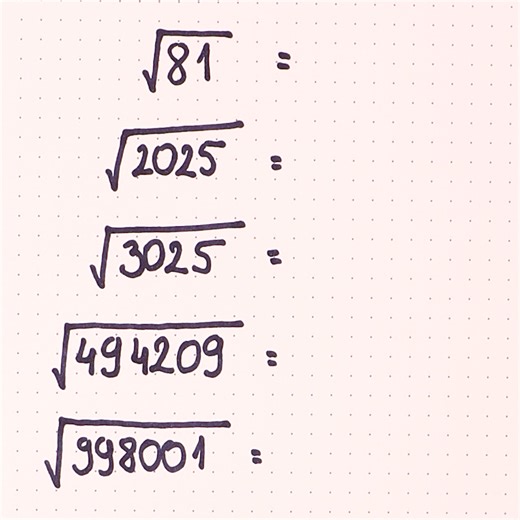 √81 =
√2025 =
√3025 =
√494209 =
√998001 =